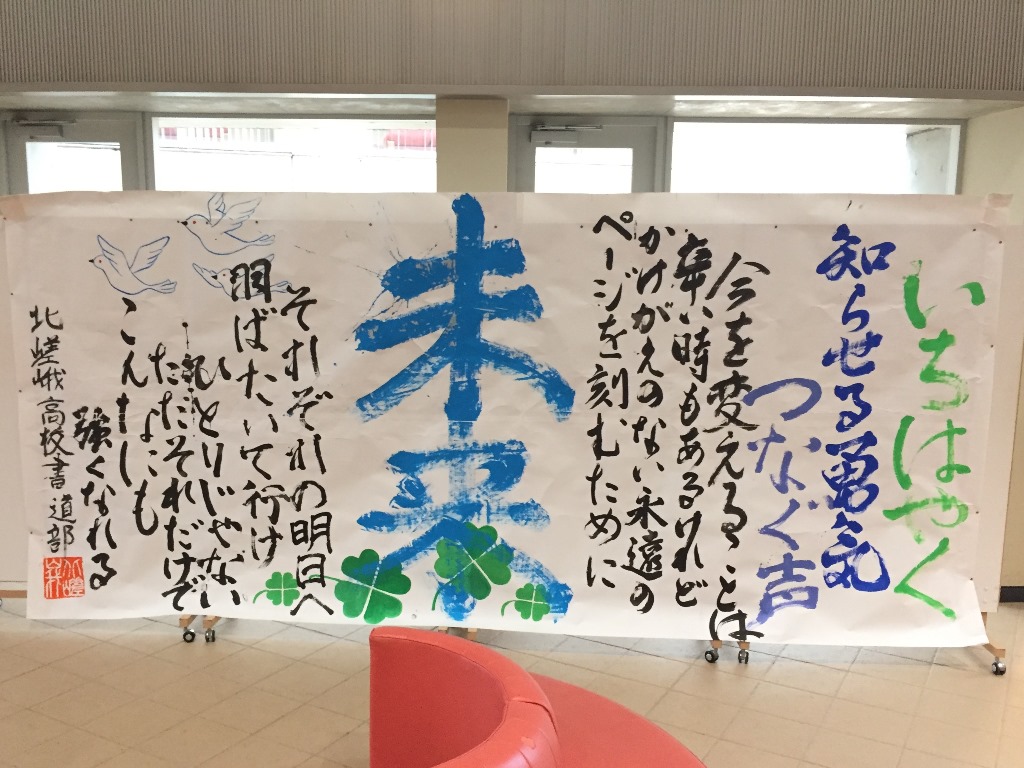 いちはやく
知らせる勇気
つなぐ声
今を変えることは
辛い時もあるけれど
かけがえのない永遠の
ページを刻むために
未来
それぞれの明日へ
羽ばたいて行け
ひとりじゃない
ただそれだけで
こんなにも
強くなれる
北嵯峨高校書道部